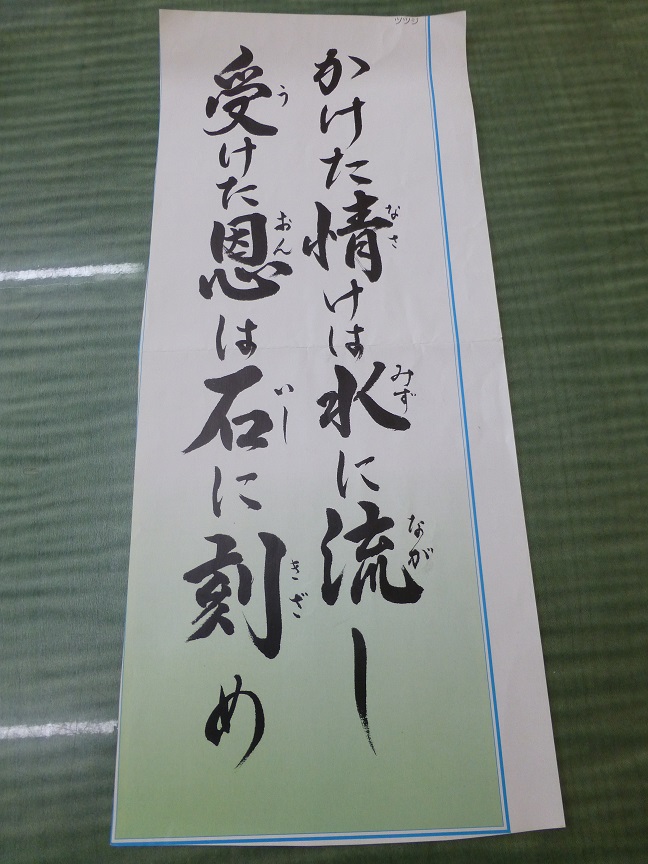 かけた情けは水に流し
受けた恩は石に刻め
なさ
みず
なが
う
おん
いし
きざ
ツツジ